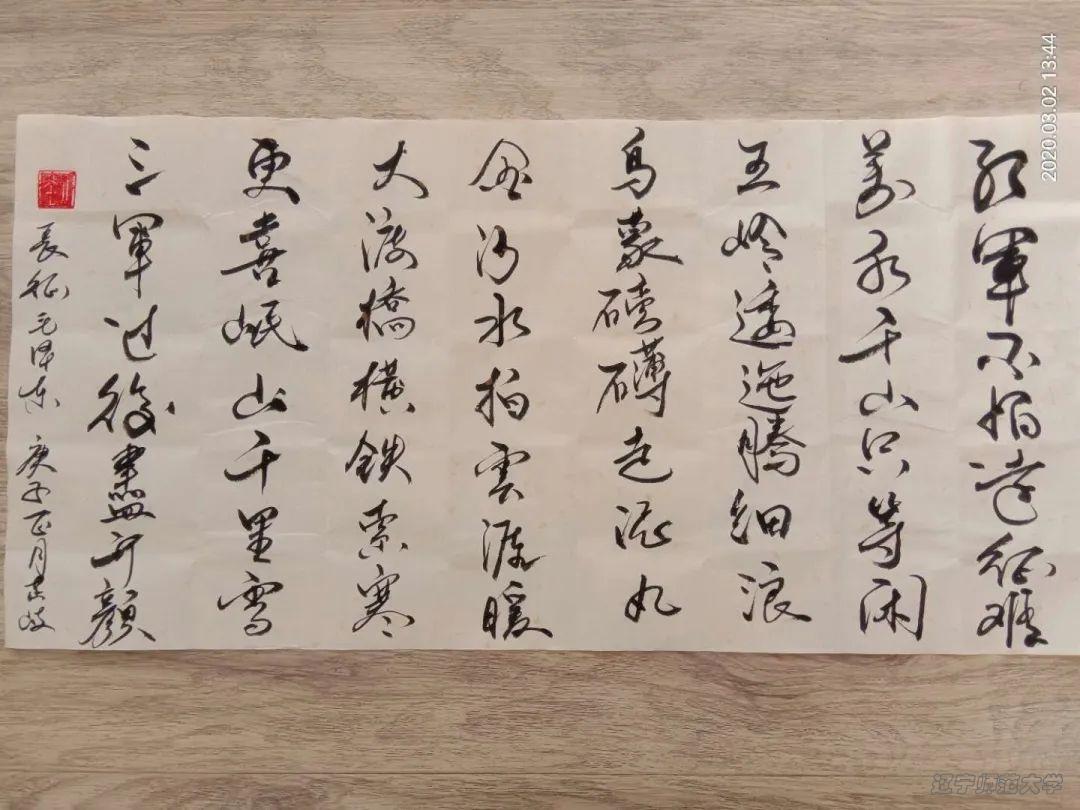 红軍不怕遠征难
萬水千山只等闲
五岭逶迤腾细浪
烏蒙磅礴走泥丸
金沙水拍雲涯暖
大渡橋橫鉄索寒
更喜岷山千里雪
三軍过後盡开顏
長征毛泽东 庚子正月
2020.03.02 13:44
辽宁师范大学